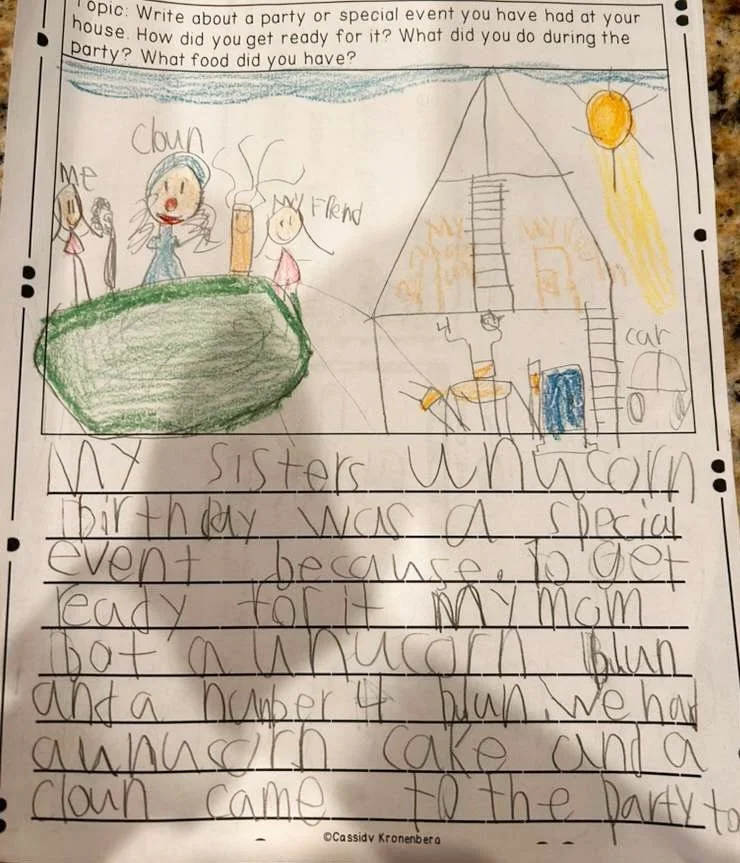 Topic: Write about a party or special event you have had at your
house. How did you get ready for it? What did you do during the
party? What food did you have?
Cloun
Me
My Fiend
My
My
4
car
My sisters unucorn
birthday was a special
event because. To get
ready for it my mom
Bot a unucorn blun
and a number 4 blun. We had
a unucorn cake and a
cloun came to the party to
©Cassidy Kronenberg